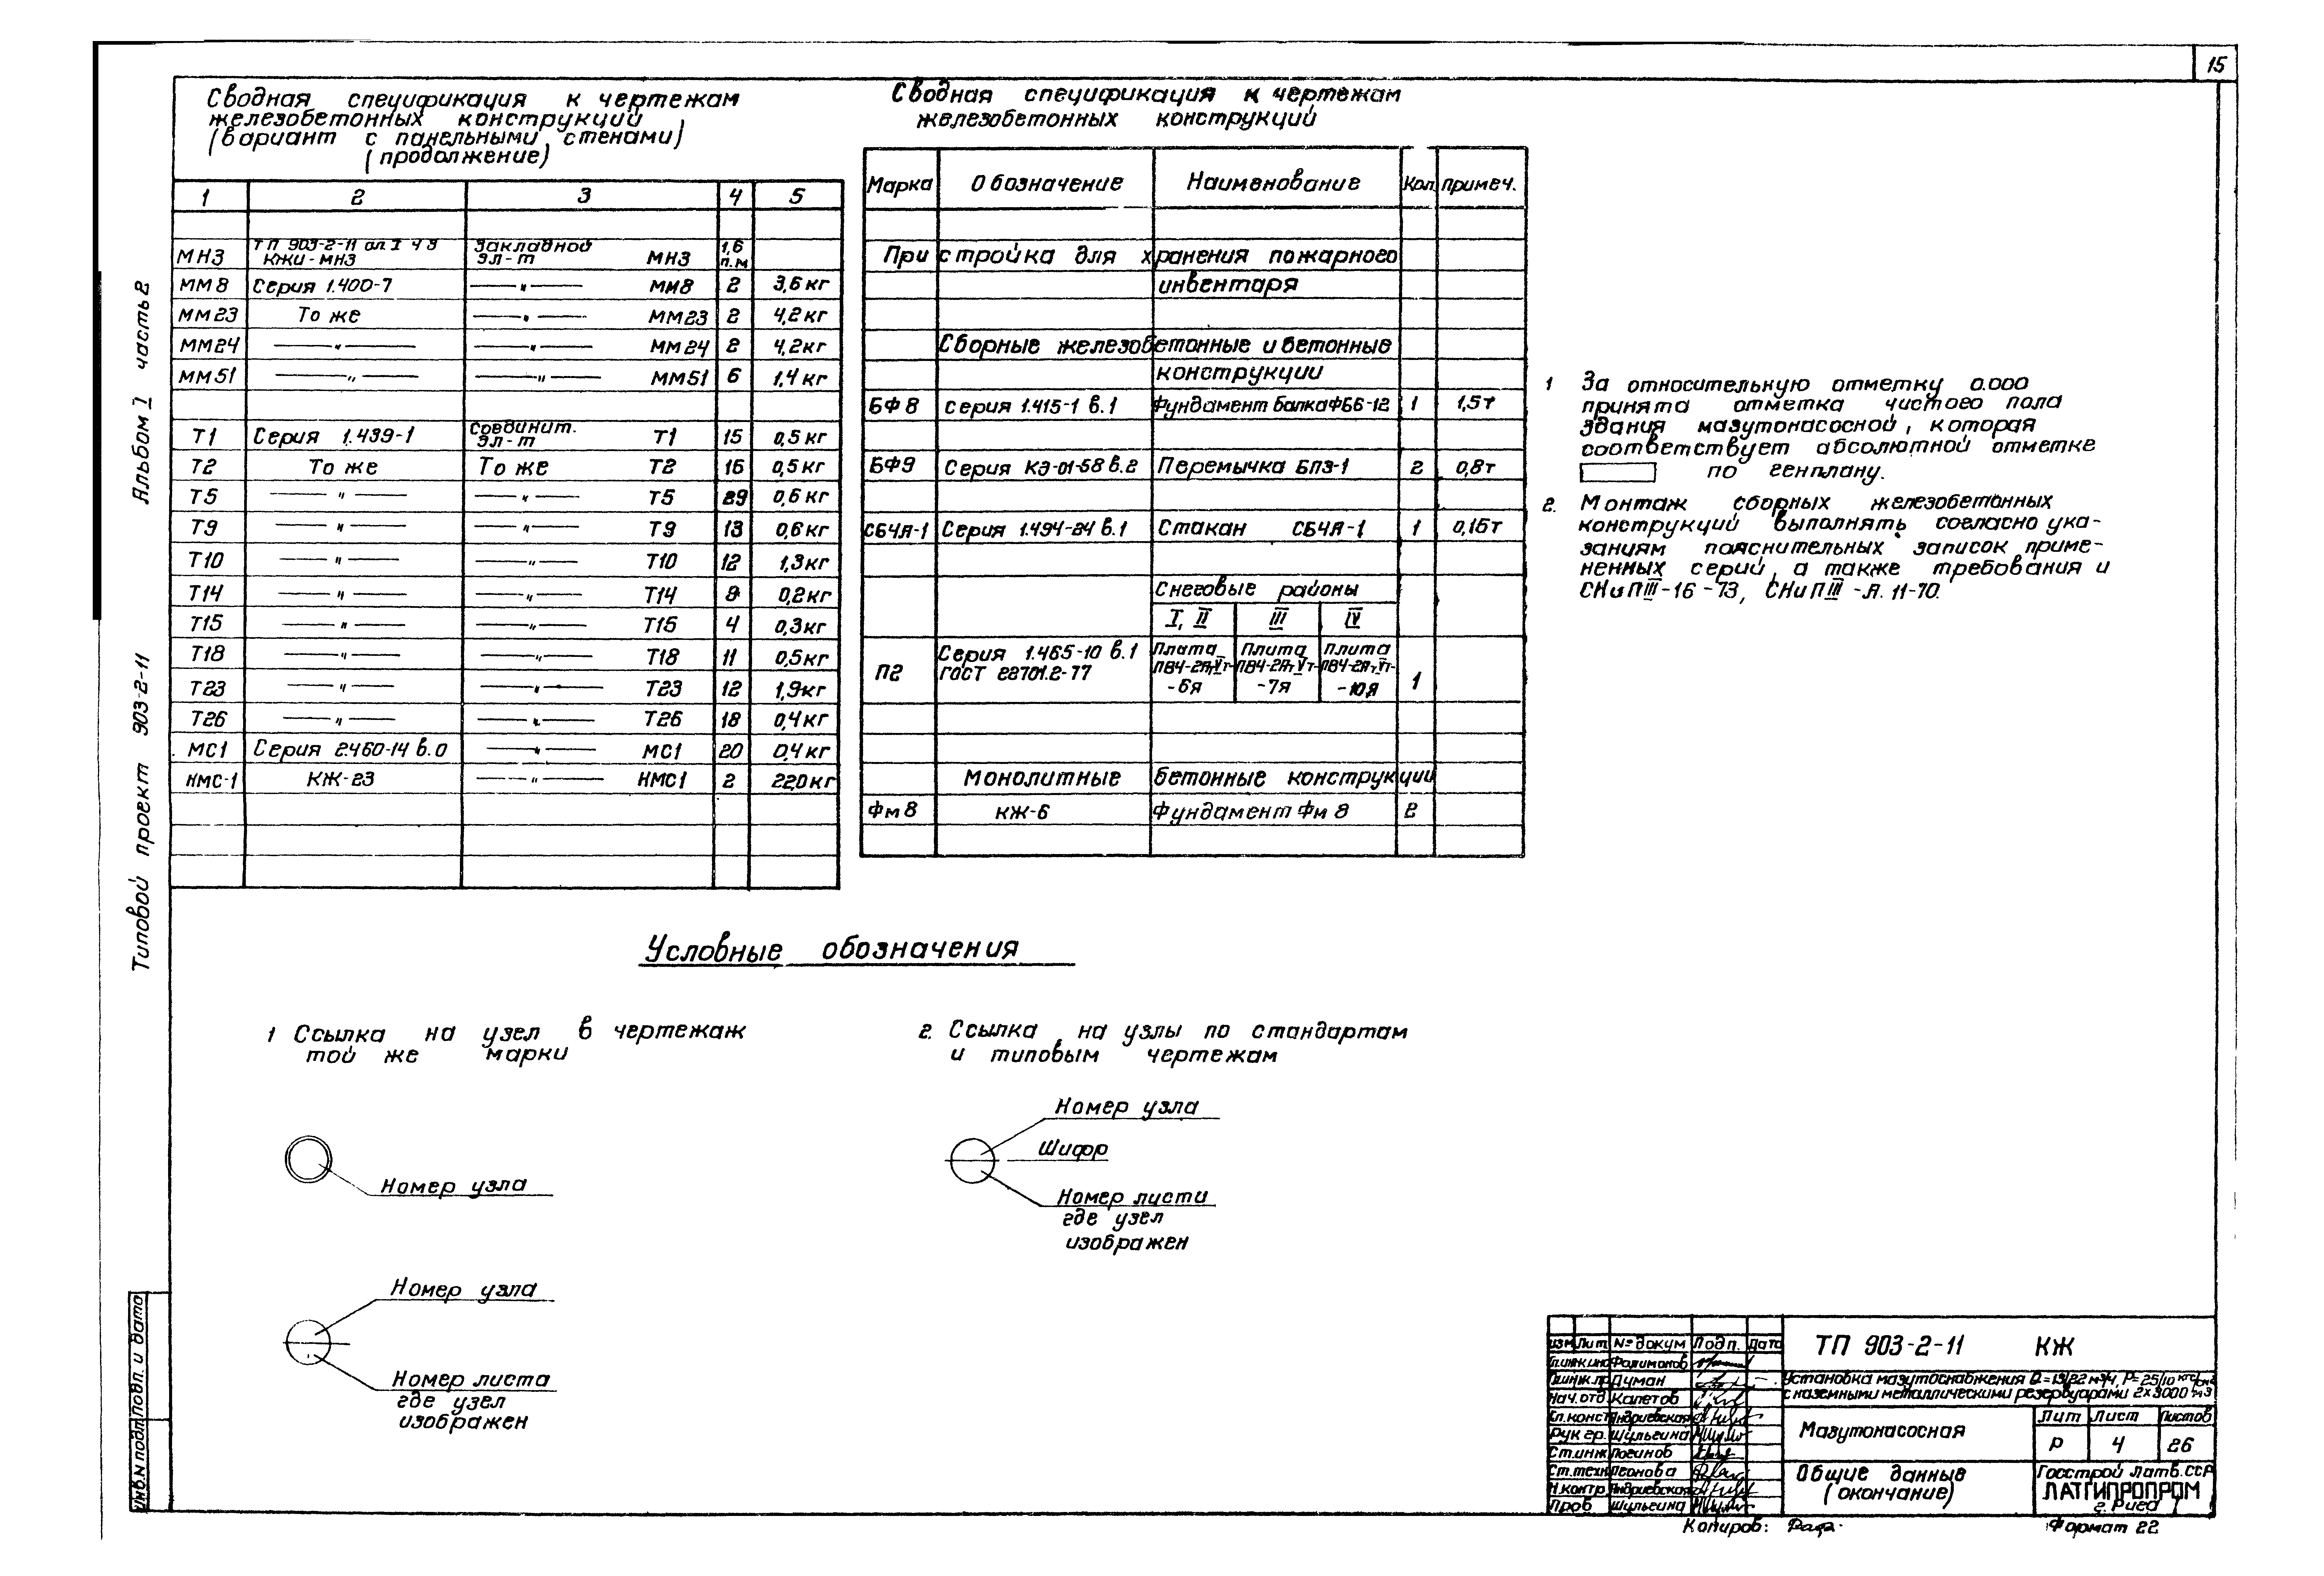 15
Альбом I часть 2
Типовой проект 903-2-11
Сводная спецификация к чертежам
железобетонных конструкций
(вариант с панельными стенами)
(продолжение)
1 2 3 4 5
МН3 ТП 903-2-11 ал.I ч 3 КЖИ-МН3 Закладной эл-т МН3 1,6 п.м
ММ8 Серия 1.400-7 —"— ММ8 2 3,6 кг
ММ23 То же —"— ММ23 2 4,2 кг
ММ24 —"— —"— ММ24 2 4,2кг
ММ51 —"— —"— ММ51 6 1,4 кг
Т1 Серия 1.439-1 Соединит. эл-т Т1 15 0,5 кг
Т2 То же То же Т2 16 0,5 кг
Т5 —"— —"— Т5 29 0,6 кг
Т9 —"— —"— Т9 13 0,6 кг
Т10 —"— —"— Т10 12 1,3кг
Т14 —"— —"— Т14 0,2кг
Т15 —"— —"— Т15 4 0,3кг
Т18 —"— —"— Т18 11 0,5кг
Т23 —"— —"— Т23 12 1,9кг
Т26 —"— —"— Т26 18 0,4 кг
МС1 Серия 2460-14 в.0 —"— МС1 20 0,4 кг
НМС-1 КЖ-23 —"— НМС1 2 22,0 кг
Сводная спецификация к чертежам
железобетонных конструкций
Марка Обозначение Наименование Кол. Примеч.
Пристройка для хранения пожарного
инвентаря
Сборные железобетонные и бетонные
конструкции
БФ8 Серия 1.415-1 в.1 Фундамент балка ФБ6-12 1 1,5т
БФ9 Серия КЭ-01-58 в.2 Перемычка БП3-1 2 0,8т
СБ4Я-1 Серия 1.494-24 в.1 Стакан СБ4Я-1 1 0,15т
Снеговые районы
I, II III IV
П2 Серия 1.465-10 в.1 ГОСТ 22701.2-77 Плита -6я Плита -7я Плита -10я 1
Монолитные бетонные конструкции
Фм8 КЖ-6 Фундамент Фм 8 2
1 За относительную отметку 0.000
принята отметка чистого пола
здания мазутонасосной, которая
соответствует абсолютной отметке
по генплану.
2. Монтаж сборных железобетонных
конструкций выполнять согласно ука-
заниям пояснительных записок приме-
ненных серий, а также требования и
СНиП III-16-73, СНиП III-Л. 11-70.
Условные обозначения
1 Ссылка на узел в чертежах
той же марки
Номер узла
Номер узла
Номер листа
где узел
изображен
2. Ссылка на узлы по стандартам
и типовым чертежам
Номер узла
Шифр
Номер листи
где узел
изображен
Инв.N подл. Подп. и дата
Изм Лит N=докум Подп. Дата
Гл.инж.ин-та Фалимонов
Гл.инж.пр Думан
Нач.отд Калетов
Гл.конст Андриевская
Рук гр. Шульгина
Ст.инж Логинов
Ст.техн Леонова
Н.контр Андриевская
Пров Шульгина
ТП 903-2-11 КЖ
Установка мазутоснабжения Q=13/22 м³/ч, Р=25/10 кгс/см²
с наземными металлическими резервуарами 2×3000 м3
Мазутонасосная
Лит Лист Листов
Р 4 26
Общие данные
(окончание)
Госстрой Латв.ССР
ЛАТГИПРОПРОМ
г. Рига
Копиров:
Формат 22